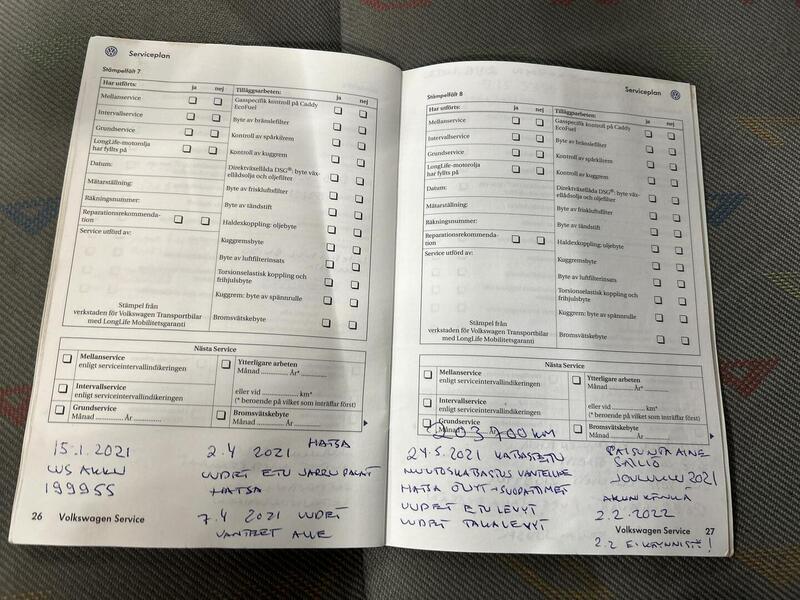 Serviceplan
Stämpelfält 7
Har utförts: ja nej
Mellanservice
Intervallservice
Grundservice
LongLife-motorolja
har fyllts på
Datum:
Mätarställning:
Räkningsnummer:
Reparationsrekommenda-
tion
Service utförd av:
Stämpel från
verkstaden för Volkswagen Transportbilar
med LongLife Mobilitetsgaranti
Tilläggsarbeten: ja nej
Gasspecifik kontroll på Caddy
EcoFuel
Byte av bränslefilter
Kontroll av spårkilrem
Kontroll av kuggrem
Direktväxellåda DSG®: byte väx-
ellådsolja och oljefilter
Byte av friskluftsfilter
Byte av tändstift
Haldexkoppling: oljebyte
Kuggremsbyte
Byte av luftfilterinsats
Torsionselastisk koppling och
frihjulsbyte
Kuggrem: byte av spännrulle
Bromsvätskebyte
Nästa Service
Mellanservice
enligt serviceintervallindikeringen
Intervallservice
enligt serviceintervallindikeringen
Grundservice
Månad ............ År
Ytterligare arbeten
Månad ............ År*
eller vid ............ km*
(* beroende på vilket som inträffar först)
Bromsvätskebyte
Månad ............ År
15.1.2021
WS AKKU
199955
2.4 2021 HATSA
UUDET ETU JARRU PALAT
HATSA
7.4 2021 UUDET
VANTEET ALLE
26 Volkswagen Service
Serviceplan
Stämpelfält 8
Har utförts: ja nej
Mellanservice
Intervallservice
Grundservice
LongLife-motorolja
har fyllts på
Datum:
Mätarställning:
Räkningsnummer:
Reparationsrekommenda-
tion
Service utförd av:
Stämpel från
verkstaden för Volkswagen Transportbilar
med LongLife Mobilitetsgaranti
Tilläggsarbeten: ja nej
Gasspecifik kontroll på Caddy
EcoFuel
Byte av bränslefilter
Kontroll av spårkilrem
Kontroll av kuggrem
Direktväxellåda DSG®: byte väx-
ellådsolja och oljefilter
Byte av friskluftsfilter
Byte av tändstift
Haldexkoppling: oljebyte
Kuggremsbyte
Byte av luftfilterinsats
Torsionselastisk koppling och
frihjulsbyte
Kuggrem: byte av spännrulle
Bromsvätskebyte
Nästa Service
Mellanservice
enligt serviceintervallindikeringen
Intervallservice
enligt serviceintervallindikeringen
Grundservice
Månad År
Ytterligare arbeten
Månad ............ År*
eller vid ............ km*
(* beroende på vilket som inträffar först)
Bromsvätskebyte
Månad ............ År
203700 KM
24.5.2021 KATSASTETTU
MUUTOSKATSASTUS VANTEILLE
HATSA ÖLJYT + SUODATTIMET
UUDET ETU LEVYT
UUDET TAKALEVYT
PAISUNTA AINE
SÄILIÖ
JOULUKUU 2021
2.2.2022
Volkswagen Service 27
2.2 EI KÄYNNISTY!